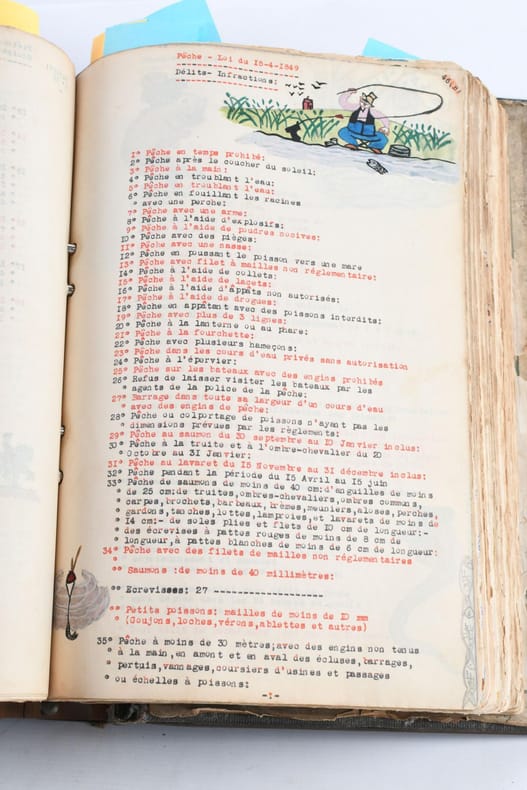 Pêche - Loi du 15-4-1829
Délits- Infractions:
1° Pêche en temps prohibé:
2° Pêche après le coucher du soleil:
3° Pêche à la main:
4° Pêche en troublant l'eau:
5° Pêche en troublant l'eau:
6° Pêche en fouillant les racines
° avec une perche:
7° Pêche avec une arme:
8° Pêche à l'aide d'explosifs:
9° Pêche à l'aide de poudres nocives:
10° Pêche avec des pièges:
11° Pêche avec une nasse:
12° Pêche en poussant le poisson vers une mare
13° Pêche avec filet à mailles non réglementaire:
14° Pêche à l'aide de collets:
15° Pêche à l'aide de lacets:
16° Pêche à l'aide d'appâts non autorisés:
17° Pêche à l'aide de drogues:
18° Pêche en appâtant avec des poissons interdits:
19° Pêche avec plus de 3 lignes:
20° Pêche à la lanterne ou au phare:
21° Pêche à la fourchette:
22° Pêche avec plusieurs hameçons:
23° Pêche dans les cours d'eau privés sans autorisation
24° Pêche à l'épervier:
25° Pêche sur les bateaux avec des engins prohibés
26° Refus de laisser visiter les bateaux par les
° agents de la police de la pêche:
27° Barrage dans toute sa largeur d'un cours d'eau
° avec des engins de pêche:
28° Pêche ou colportage de poissons n'ayant pas les
° dimensions prévues par les règlements:
29° Pêche au saumon du 30 septembre au 10 Janvier inclus:
30° Pêche à la truite et à l'ombre-chevalier du 20
° Octobre au 31 Janvier:
31° Pêche au lavaret du 15 Novembre au 31 décembre inclus:
32° Pêche pendant la période du 15 Avril au 15 juin
33° Pêche de saumons de moins de 40 cm:d'anguilles de moins
° de 25 cm:de truites,ombres-chevaliers,ombres communs,
° carpes,brochets,barbeaux,brèmes,meuniers,aloses,perches,
° gardons,tanches,lottes,lamproies,et lavarets de moins de
° 14 cm:- de soles plies et flets de 10 cm de longueur:-
° des écrevisses à pattes rouges de moins de 8 cm de
° longueur,à pattes blanches de moins de 6 cm de longueur:
34° Pêche avec des filets de mailles non réglementaires
°° Saumons :de moins de 40 millimètres:
°° Ecrevisses: 27 -------------------
°° Petits poissons: mailles de moins de 10 mm
°° (Goujons,loches,vérons,ablettes et autres)
35° Pêche à moins de 30 mètres;avec des engins non tenus
° à la main,en amont et en aval des écluses,barrages,
° pertuis,vannages,coursiers d'usines et passages
° ou échelles à poissons: